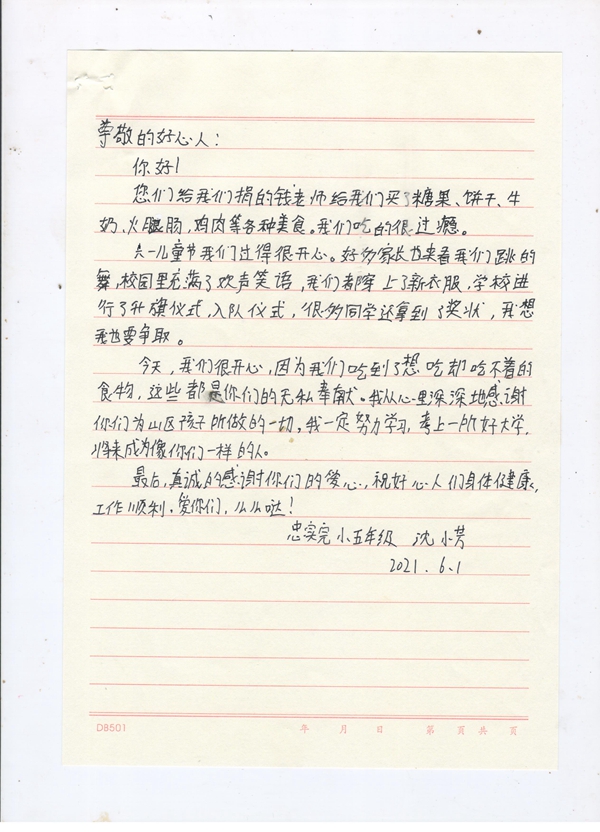 尊敬的好心人：
你好！
您们给我们捐的钱老师给我们买了糖果、饼干、牛
奶、火腿肠，鸡肉等各种美食。我们吃的很过瘾。
六一儿童节我们过得很开心。好多家长也来看我们跳的
舞，校园里充满了欢声笑语，我们都穿上了新衣服，学校进
行了升旗仪式，入队仪式，很多同学还拿到了奖状，我想
我也要争取。
今天，我们很开心，因为我们吃到了想吃却吃不着的
食物，这些都是你们的无私奉献。我从心里深深地感谢
你们为山区孩子所做的一切，我一定努力学习，考上一所好大学，
将来成为像你们一样的人。
最后，真诚的感谢你们的爱心，祝好心人们身体健康，
工作顺利，爱你们，么么哒！
忠实完小五年级 沈小芳
2021.6.1
D8501 年 月 日 第 页 共 页